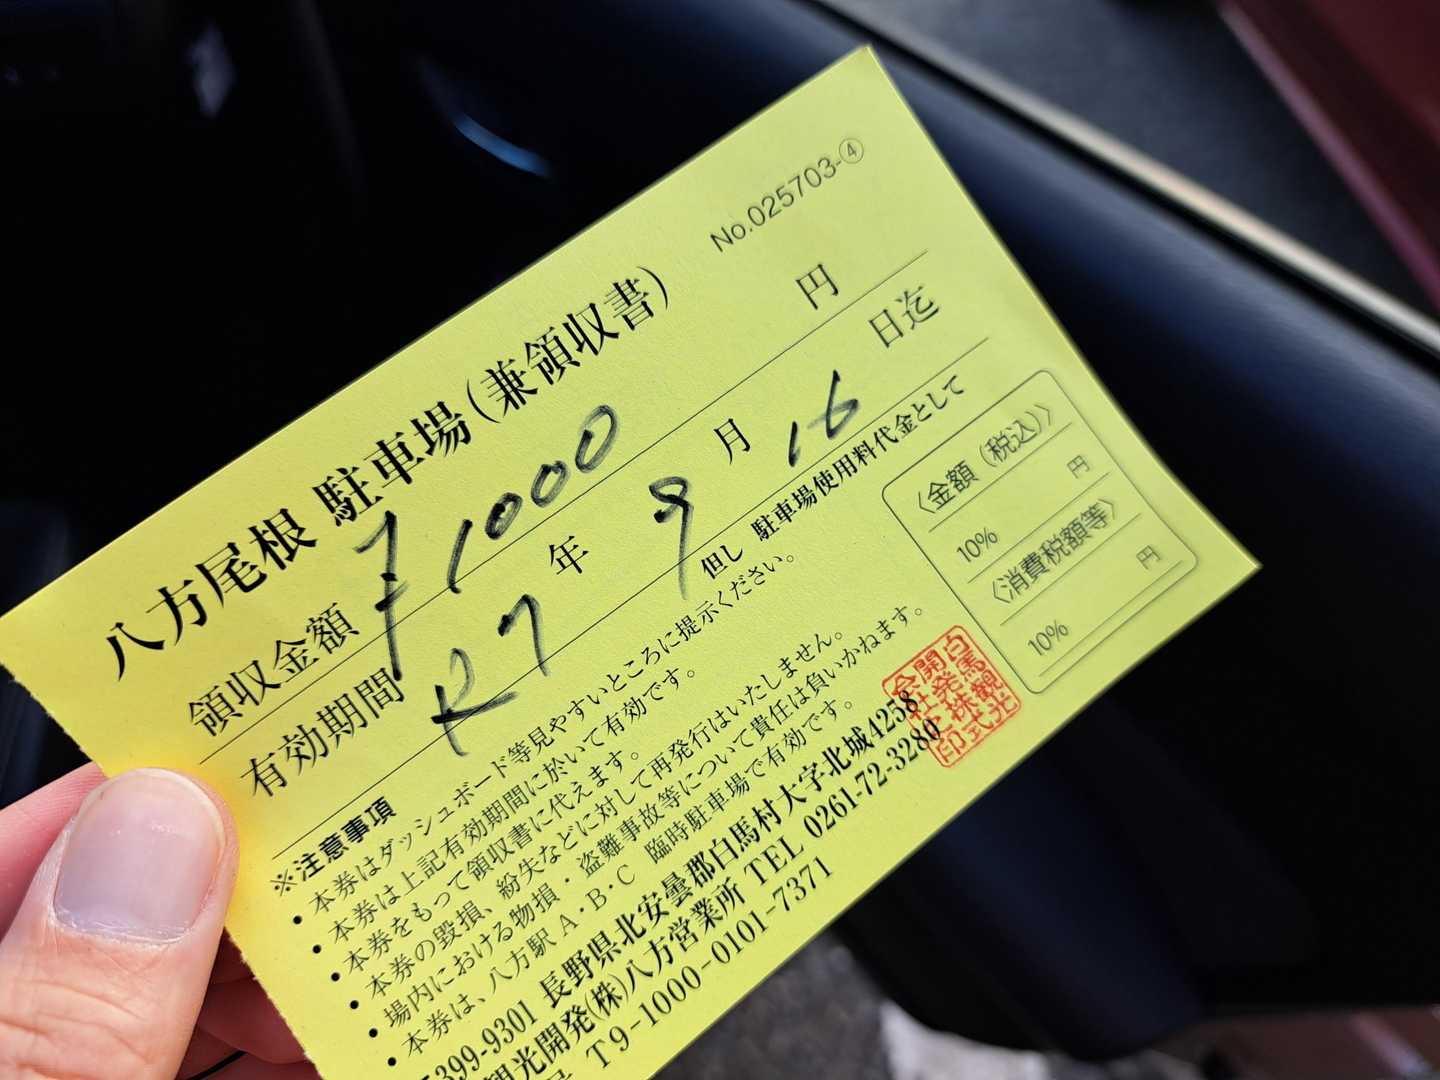 No.025703-④
八方尾根 駐車場(兼領収書)
領収金額 ¥1000 円
有効期間 R7 年 9 月 16 日迄
但し 駐車場使用料代金として
〈金額(税込)〉
円
10%
〈消費税額等〉
円
10%
※注意事項
• 本券はダッシュボード等見やすいところに提示ください。
• 本券は上記有効期間に於いて有効です。
• 本券をもって領収書に代えます。
• 本券の毀損、紛失などに対して再発行はいたしません。
• 場内における物損・盗難事故等について責任は負いかねます。
• 本券は、八方駅 A・B・C 臨時駐車場で有効です。
399-9301 長野県北安曇郡白馬村大字北城4258
観光開発(株)八方営業所 TEL 0261-72-3280
T9-1000-0101-7371
白馬観光開発株式会社印